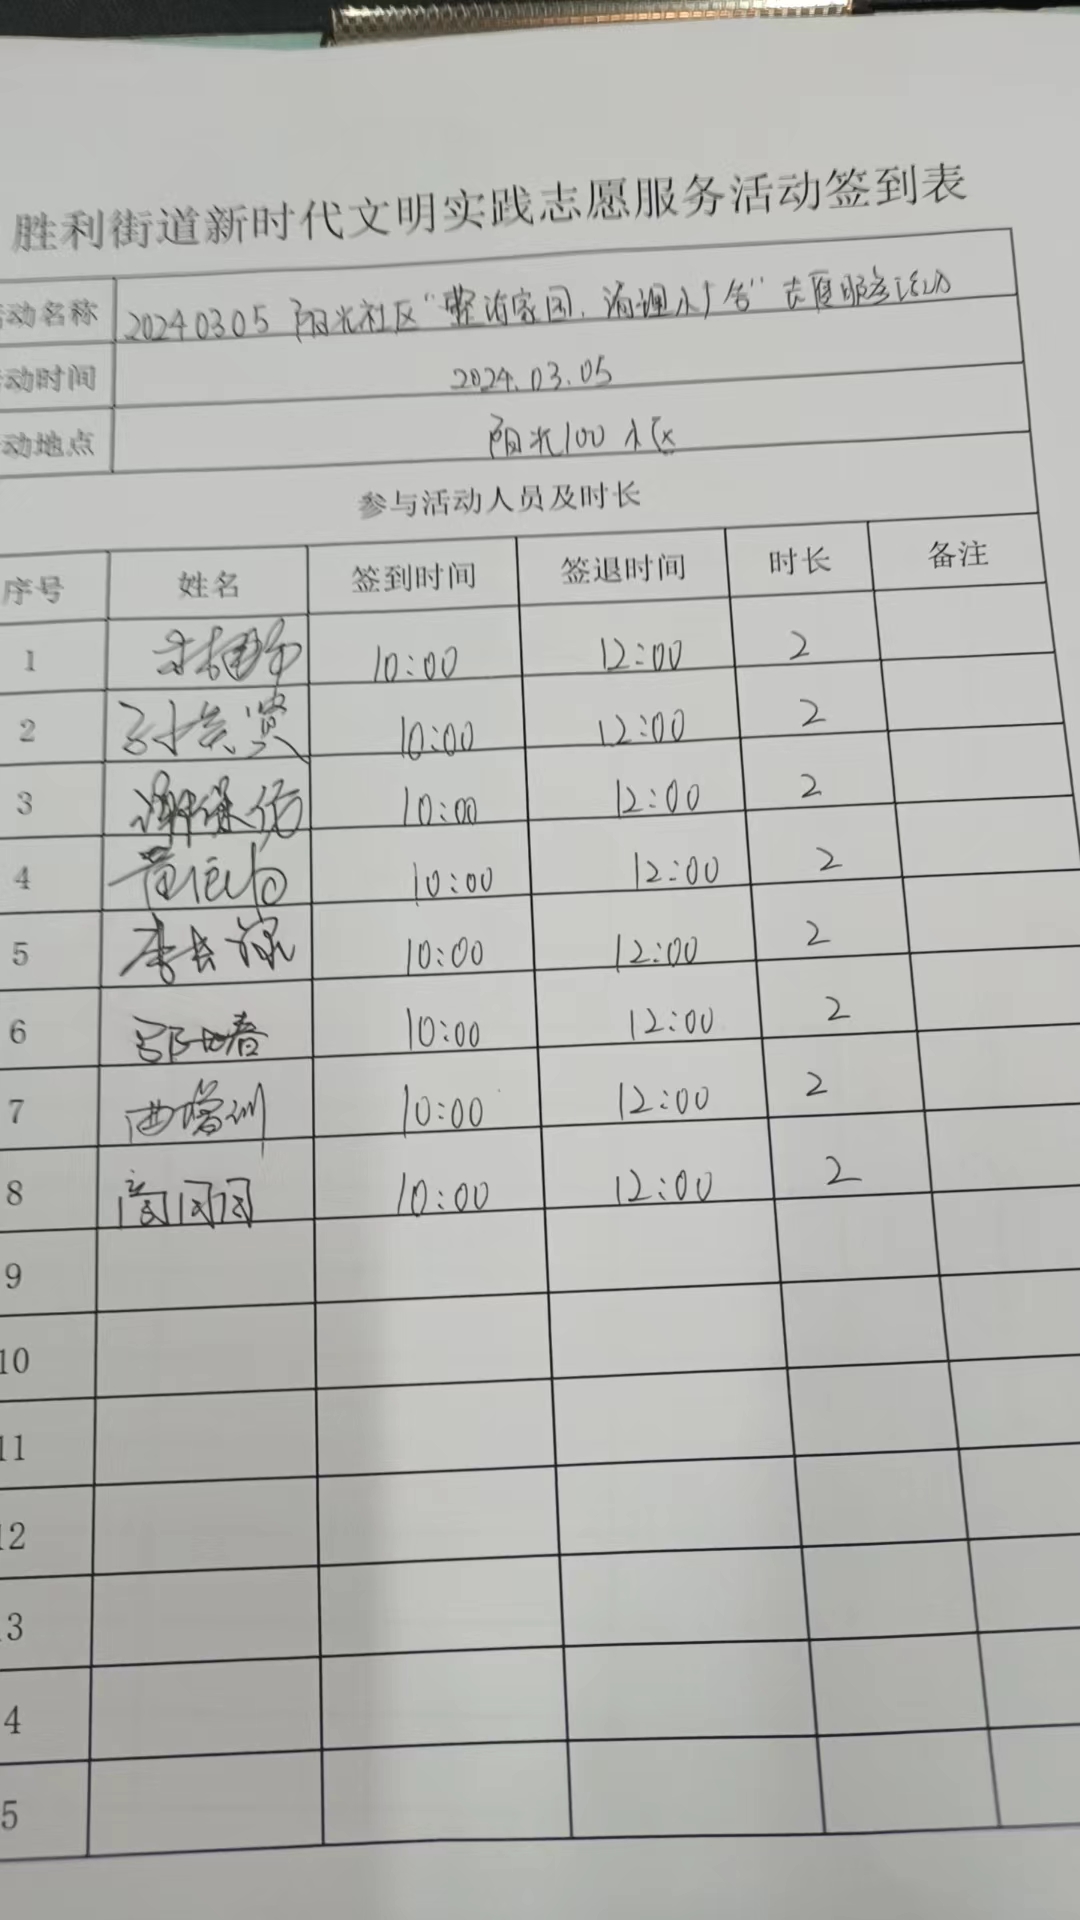 胜利街道新时代文明实践志愿服务活动签到表
动名称 20240305 阳光社区“整治家园、清理小广告”志愿服务活动
动时间 2024.03.05
动地点 阳光100小区
参与活动人员及时长
序号 姓名 签到时间 签退时间 时长 备注
1 10:00 12:00 2
2 10:00 12:00 2
3 谢继伟 10:00 12:00 2
4 10:00 12:00 2
5 李长禄 10:00 12:00 2
6 10:00 12:00 2
7 曲增训 10:00 12:00 2
8 商同同 10:00 12:00 2
9
10
11
12
3
4
5